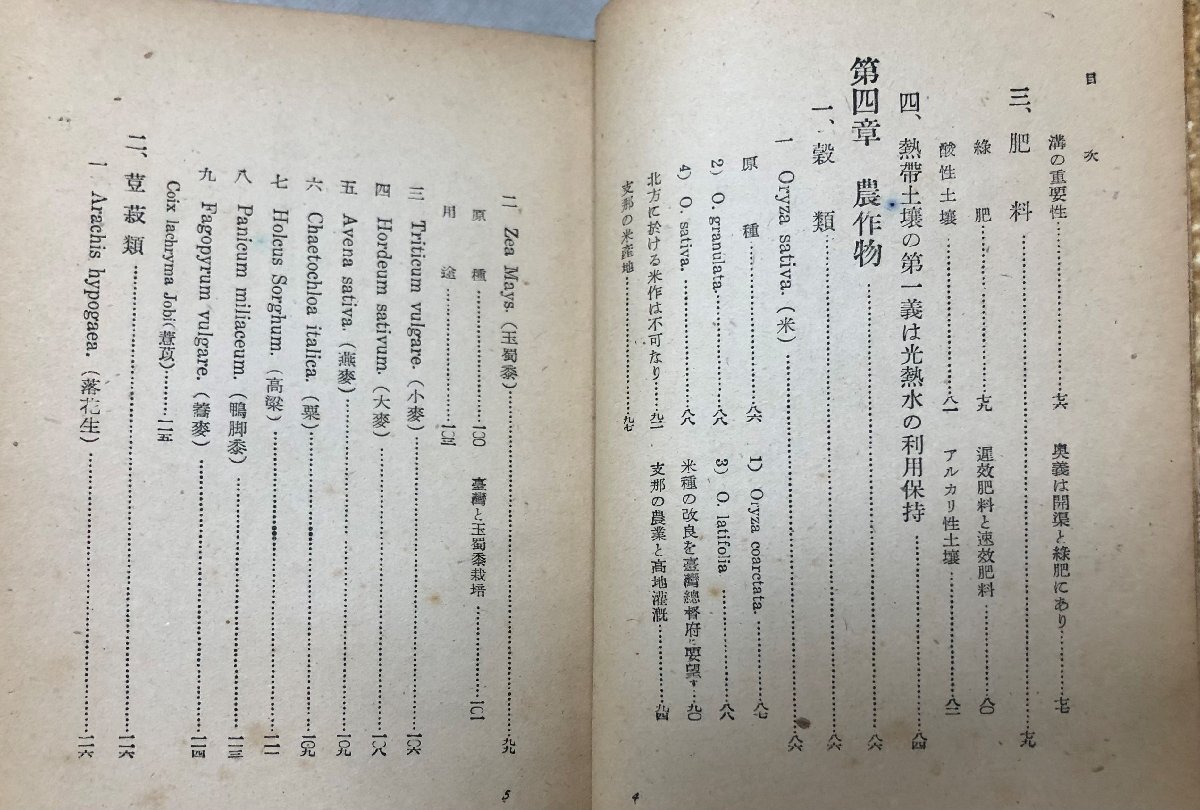 目次
溝の重要性……七六　奥義は開渠と綠肥にあり……七七
三、肥料……七九
綠肥……七九　遲效肥料と速效肥料……八〇
酸性土壤……八一　アルカリ性土壤……八二
四、熱帶土壤の第一義は光熱水の利用保持……八四
第四章　農作物……八六
一、穀類……八六
一　Oryza sativa.（米）……八六
原種……八六　1) Oryza coarctata.……八七
2) O. granulata.……八八　3) O. latifolia……八八
4) O. sativa.……八八　米種の改良を臺灣總督府に要望す……九〇
北方に於ける米作は不可なり……九二　支那の農業と高地灌漑……九四
支那の米產地……九七
4
二　Zea Mays.（玉蜀黍）……九九
原種……一〇〇　臺灣と玉蜀黍栽培……一〇一
用途……一〇三
三　Triticum vulgare.（小麥）……一〇六
四　Hordeum sativum.（大麥）……一〇八
五　Avena sativa.（燕麥）……一〇九
六　Chaetochloa italica.（粟）……一〇九
七　Holcus Sorghum.（高粱）……一一一
八　Panicum miliaceum.（鴨脚黍）……一一三
九　Fagopyrum vulgare.（蕎麥）……一一四
Coix lachryma Jobi（薏苡）……一一五
二、荳菽類……一一六
一　Arachis hypogaea.（落花生）……一一六
5